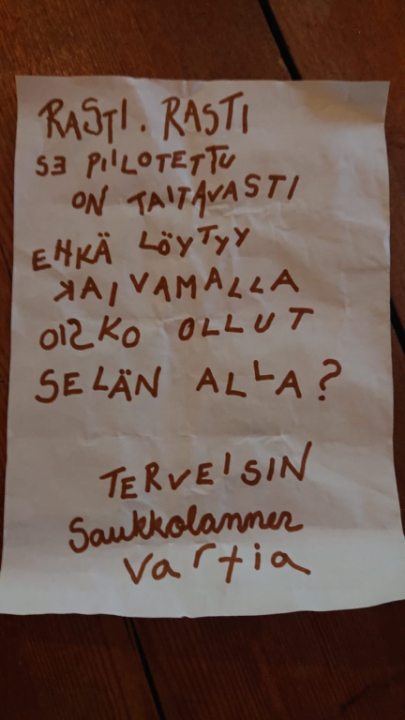 RASTI. RASTI
SE PIILOTETTU
ON TAITAVASTI
EHKÄ LÖYTYY
KAIVAMALLA
OISKO OLLUT
SELÄN ALLA?
TERVEISIN
Saukkolannen
vartia